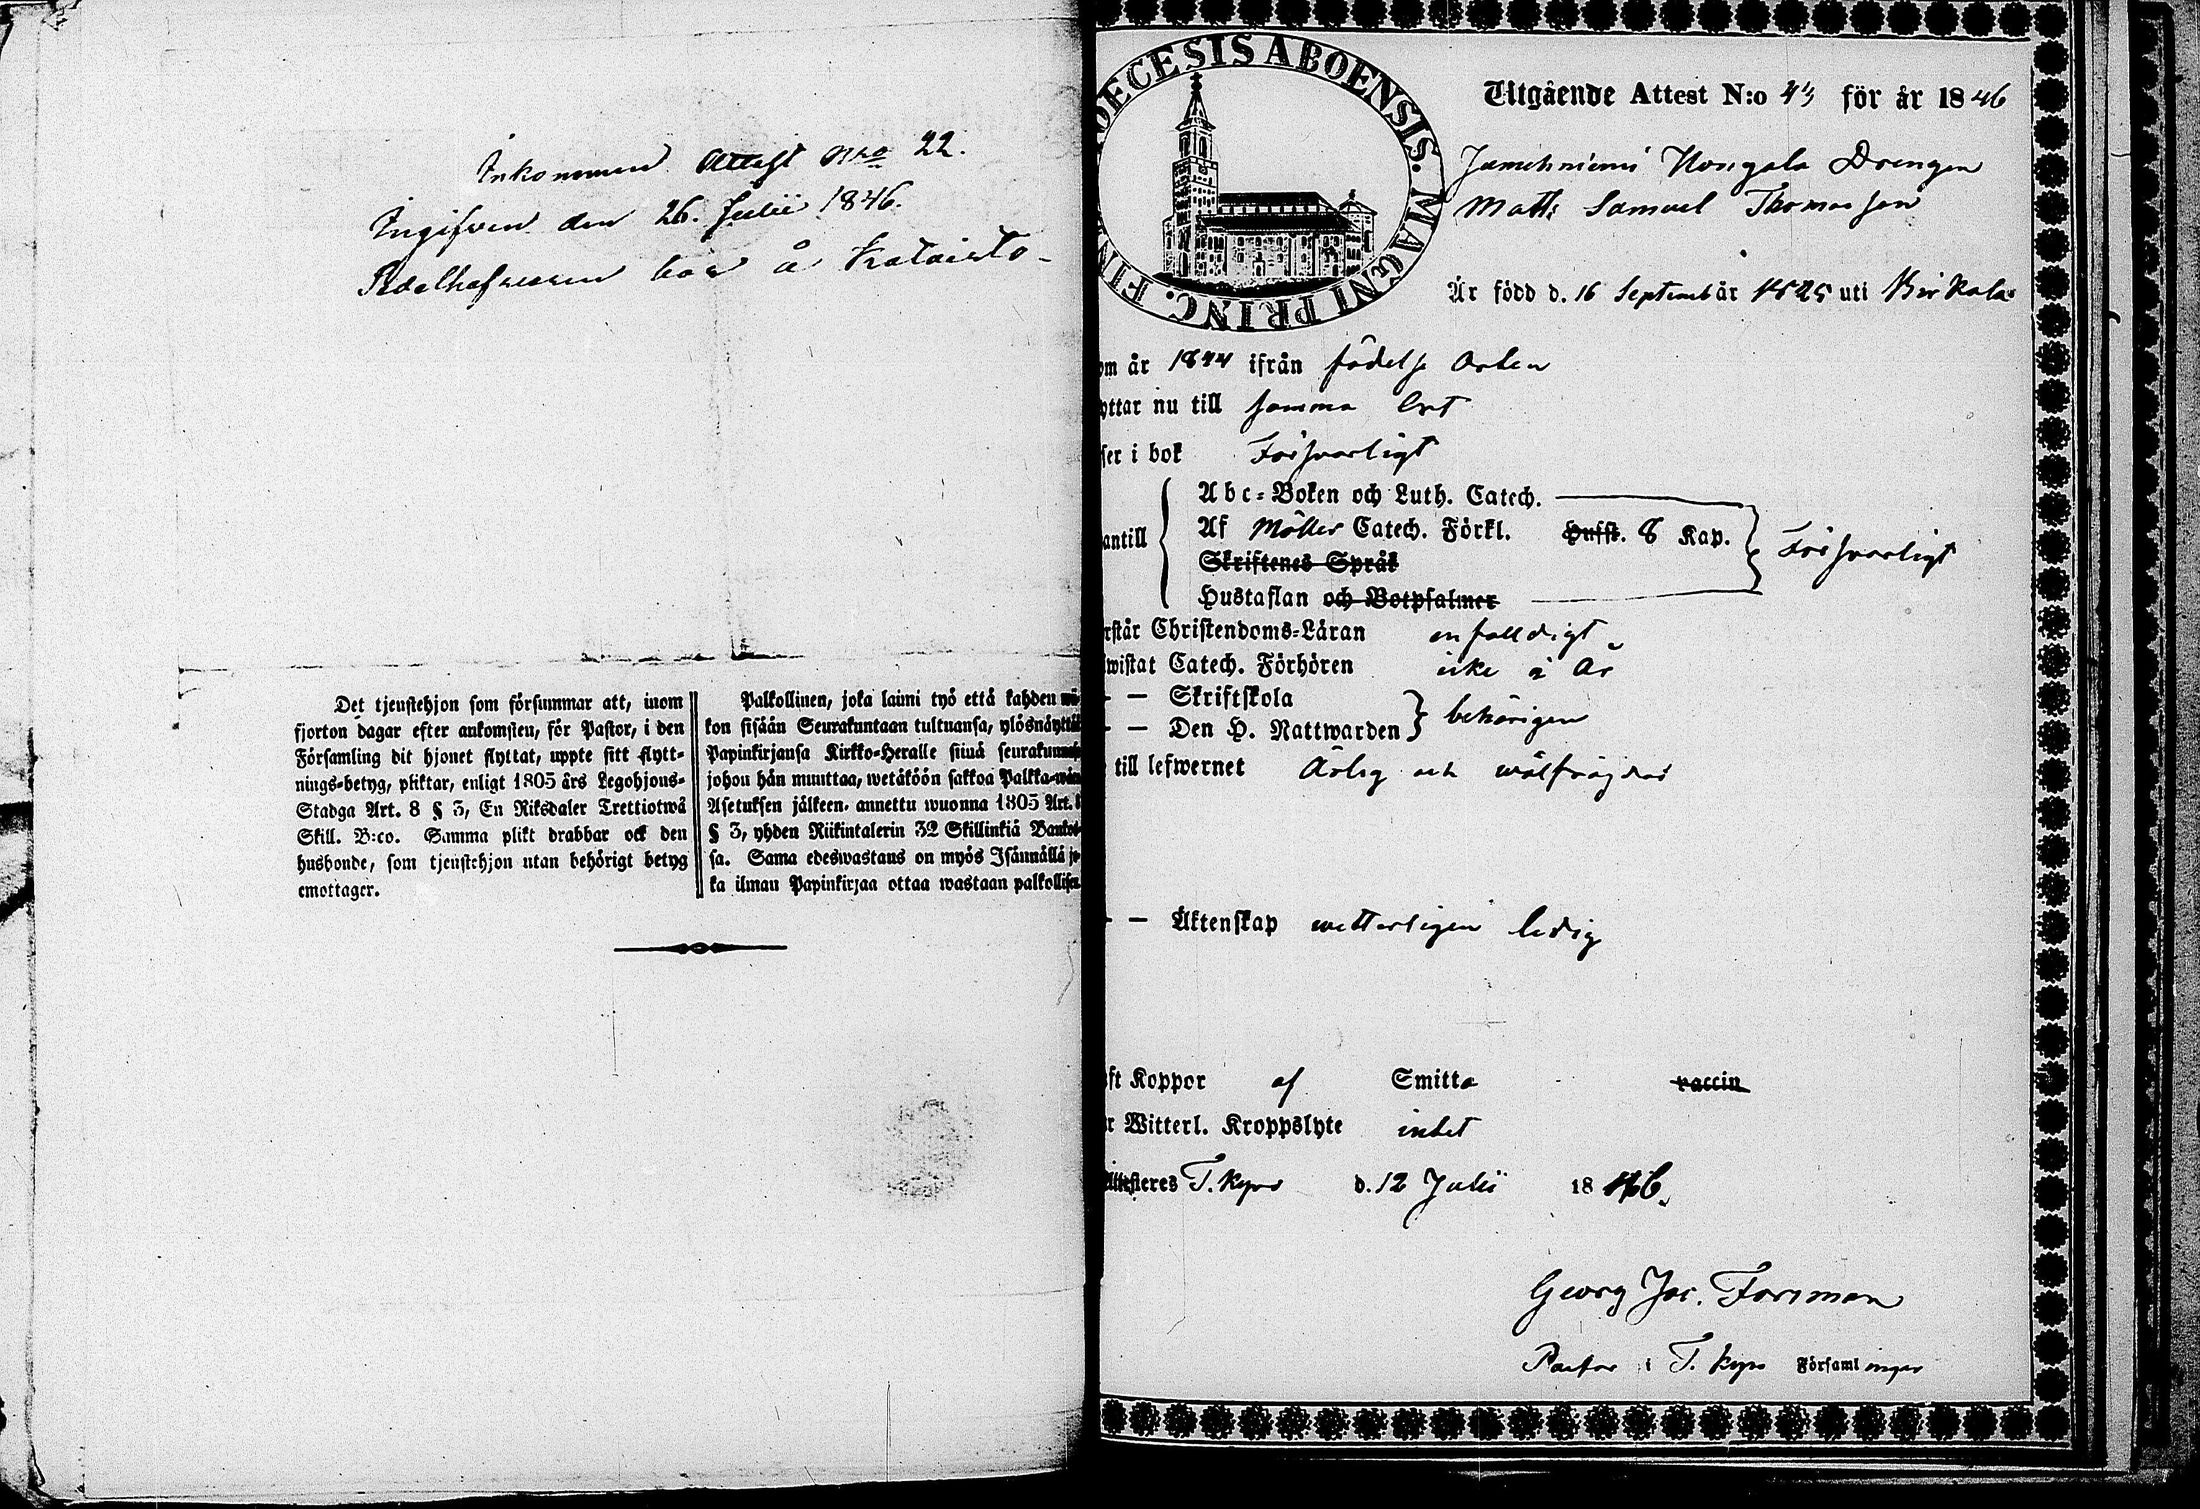 Inkommen Attest Nro 22.
Ingifven den 26. Julii 1846.
har å
Det tjenstehjon som försummar att, inom
fjorton dagar efter ankomsten, för Pastor, i den
Församling dit hjonet flyttat, uppte sitt flytt-
nings-betyg, pliktar, enligt 1805 års Legohjons-
Stadga Art. 8 § 3, En Riksdaler Trettiotwå
Skill. B:co. Samma plikt drabbar ock den
husbonde, som tjenstehjon utan behörigt betyg
emottager.
Palkollinen, joka laimi työ että kahden wii-
kon sisään Seurakuntaan tultuansa, ylösnäyttää
Papinkirjansa Kirkko-Heralle siinä seurakunnasa
johon hän muuttaa, wetäköön sakkoa Palkka-wäen
Asetuksen jälkeen, annettu wuonna 1805 Art. 8
§ 3, yhden Riikintalerin 32 Skillinkiä Bankos-
sa. Sama edeswastaus on myös Isännällä jo-
ka ilman Papinkirjaa ottaa wastaan palkollisen
DECESIS ABOENSIS. MAGNI PRINC. FIN
Utgående Attest N:o 43 för år 1846
Drengen
Matts Samuel Thomasson
Är född d. 16 Septemb år 1825 uti Birkala
om år 1844 ifrån födelse Orten
yttar nu till samma Ort
ser i bok Försvarligt
antill
Abc-Boken och Luth. Catech.
Af Möllers Catech. Förkl. Hufst. 8 Kap.
Skriftenes Språk
Hustaflan och Botpsalmer
Försvarligt
rstår Christendoms-Läran enfalldigt
wistat Catech. Förhören icke i År
— — Skriftskola
— — Den H. Nattwarden
behörigen
till lefwernet Ärlig och wälfrägdad
— — Äktenskap wetterligen ledig
ft Koppor af Smitta vaccin
r Witterl. Kroppslyte intet
Attesteres T. Kyro d. 12 Julii 1846.
Georg Jac. Forsman
Pastor i T. Kyro Församlingar